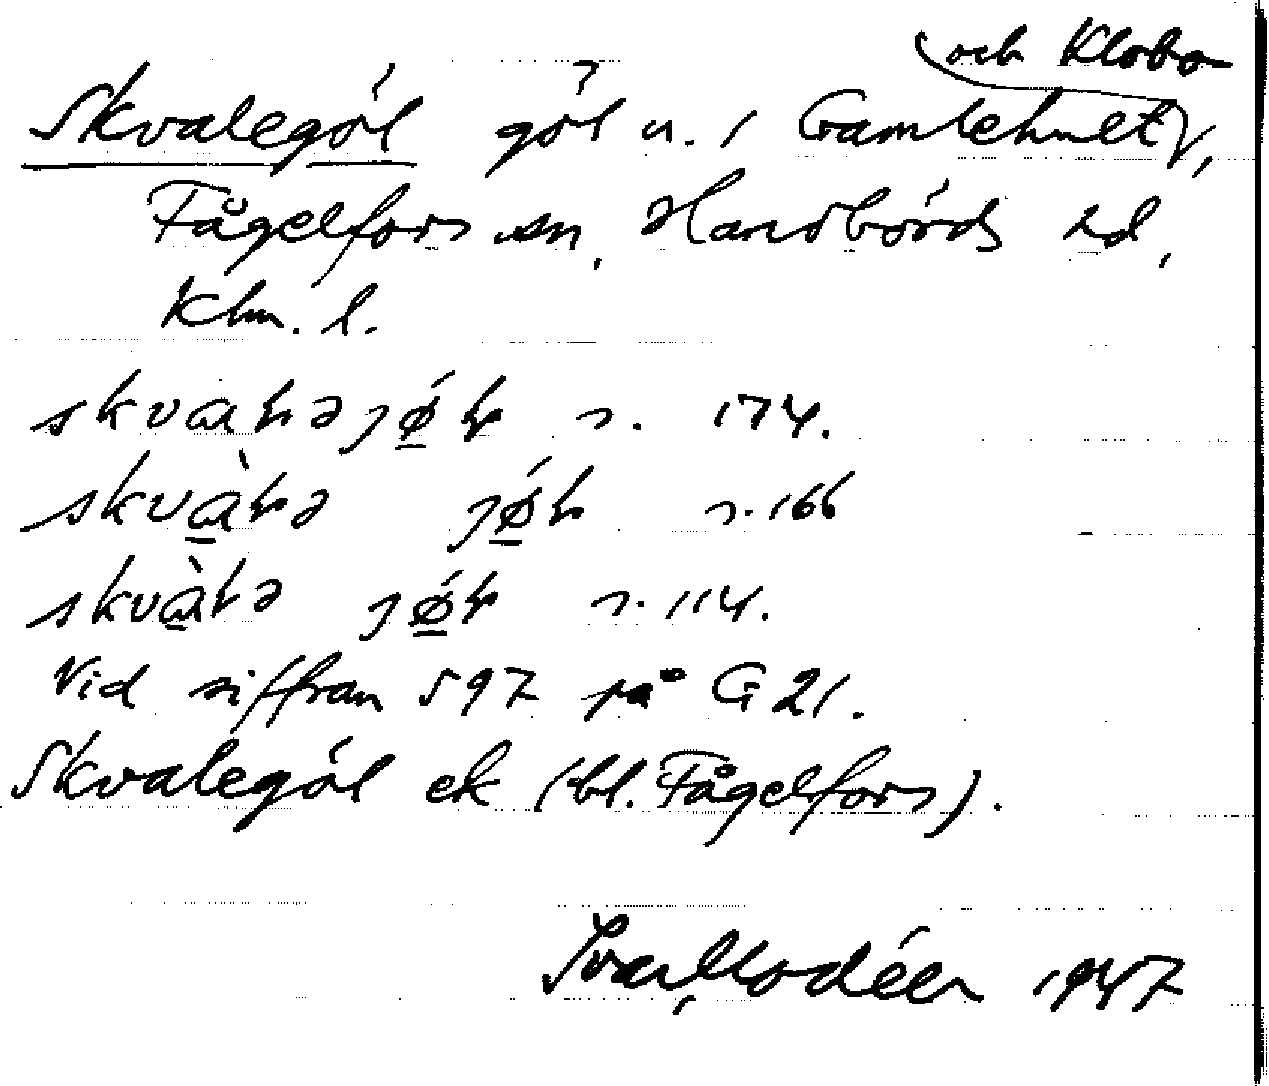 och Klobo
Skvalegöl göl n. i Gamlehult,
Fågelfors sn, Handbörds hd,
Klm. l.
skvaɫəjǿ̱ɫ s. 174.
skvà̱ɫə jǿ̱ɫ s. 166
skvà̱ɫə jǿ̱ɫ s. 114.
Vid siffran 597 på G 21.
Skvalegöl ek (bl. Fågelfors).
Ivar Modéer 1947